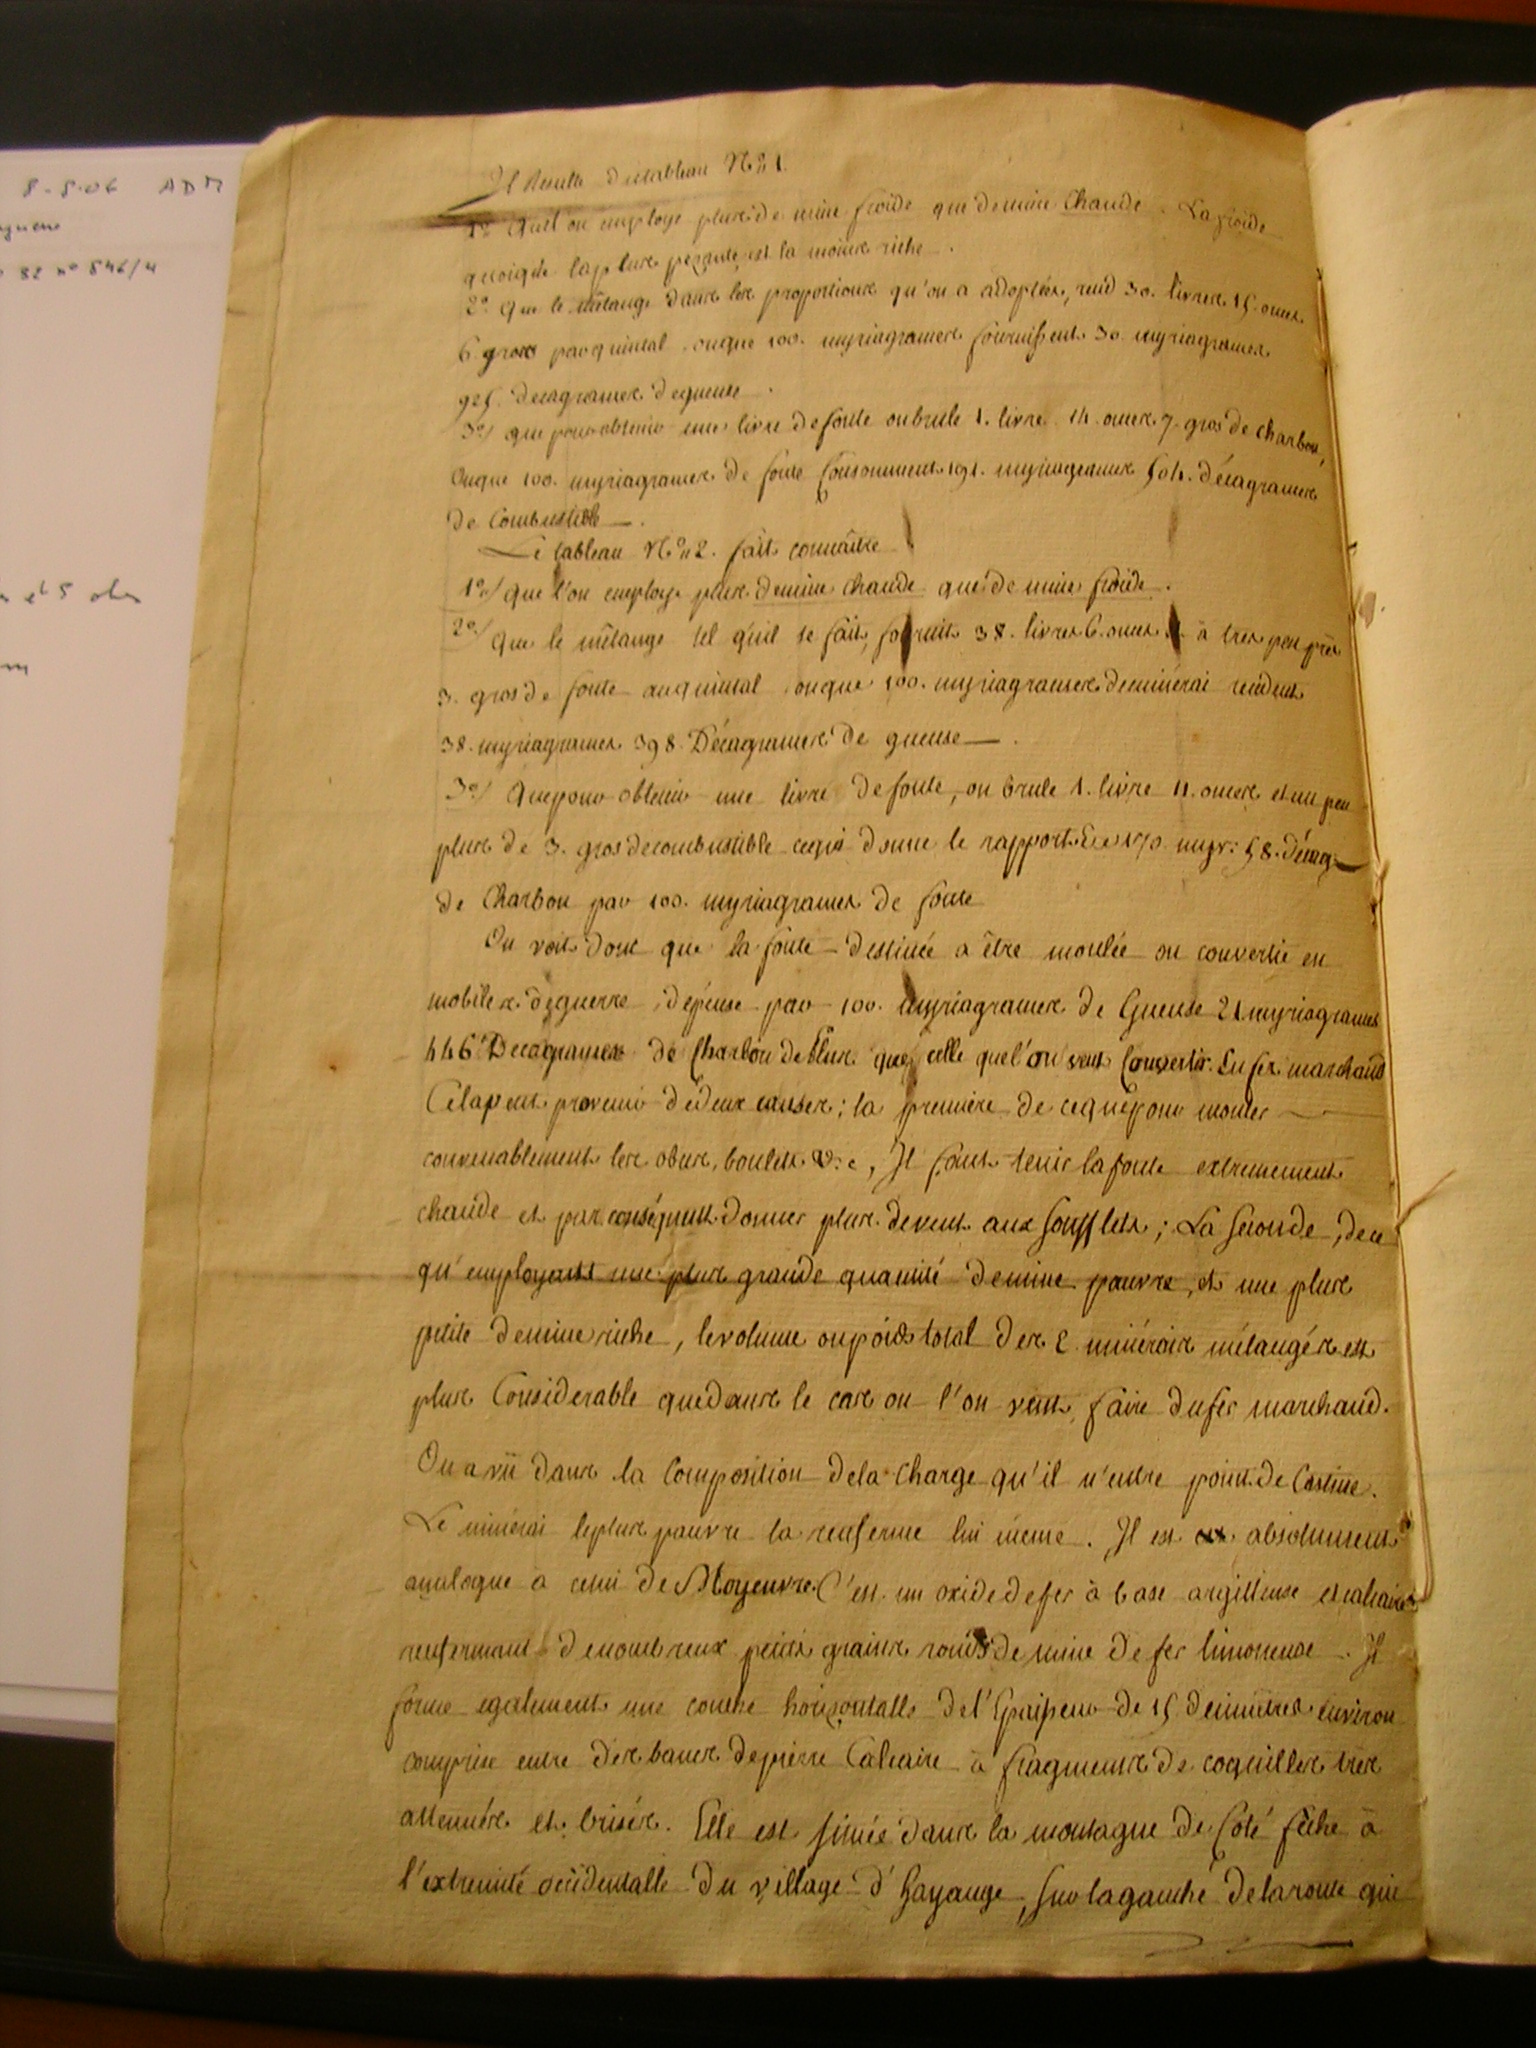 8-8-06 ADM
32 nº 546/4
et 5
Il Résulte du tableau Nº 1.
1º Qu'il on employe plus de mine froide que de mine Chaude. La froide
quoique la plus pesante, est la moins riche.
2º Que le mêlange dans les proportions qu'on a adoptées, rend 30. livres 15. onces
6 gros par quintal ou que 100. myriagrames fournissent 30 myriagrames
925. decagrames de gueuse.
3º/ que pour obtenir une livre de fonte on brule 1. livre 14. onces 7. gros de charbon,
ou que 100. myriagrames de fonte Consomment 191. myriagrames 504. décagrames
de Combustible.
Le tableau Nº 2. fait connaître
1º/ que l'on employe plus de mine chaude que de mine froide.
2º/ Que le mêlange tel qu'il se fait, fournit 38. livres 6. onces à tres peu près
3. gros de fonte au quintal ou que 100. myriagrames de minérai rendent
38. myriagrames 398 Décagrames de gueuse.
3º/ Que pour obtenir une livre de fonte, on brule 1. livre 11. onces et un peu
plus de 3. gros de combustible ce qui donne le rapport de 170 myr: 58. décag:
de Charbon par 100. myriagrames de fonte
On voit donc que la fonte destinée a être moulée ou convertie en
mobiles de guerre, dépense par 100. myriagrames de Gueuse 21 myriagrames
446 Decagrames de Charbon de Plus que celle que l'on veut Convertir En fer marchand
Cela peut provenir de deux causes; la première de ce que pour mouler
convenablement les obus, boulets &c, Il faut tenir la fonte extremement
chaude et par conséquent donner plus de vent aux soufflets; La Seconde, de ce
qu'employant une plus grande quantité de mine pauvre, et une plus
petite de mine riche, le volume ou poids total des 2 minérais mélangés est
plus Considerable que dans le cas ou l'on veut faire du fer marchand.
On a vû dans la Composition de la Charge qu'il n'entre point de Castine.
Le minérai le plus pauvre la renferme lui meme. Il est absolument
analogue a celui de Moyeuvre. C'est un oxide de fer à base argilleuse et calcaire
renfermant de nombreux petits grains ronds de mine de fer limoneuse. Il
forme egalement une couche horizontalle de l'Epaisseur de 15 decimètres environ
comprise entre des bancs de pierre Calcaire à fragments de coquilles très
attenués et brisés. Elle est située dans la montagne de Côté à
l'extremité occidentalle du village d'Hayange, sur la gauche de la route qui